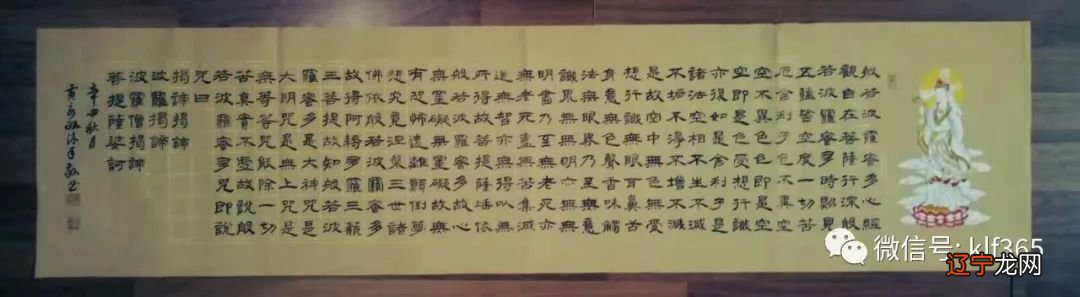 般若波羅密多心經
觀自在菩薩行深般
若波羅密多時照見
五蘊皆空度一切苦
厄舍利子色不異空
空不異色色即是空
空即是色受想行識
亦復如是舍利子是
諸法空相不生不滅
不垢不淨不增不減
是故空中無色無受
想行識無眼耳鼻舌
身意無色聲香味觸
法無眼界乃至無意
識界無無明亦無無
明盡乃至無老死亦
無老死盡無苦集滅
道無智亦無得以無
所得故菩提薩埵依
般若波羅密多故心
無罣礙無罣礙故無
有恐怖遠離顛倒夢
想究竟涅槃三世諸
佛依般若波羅密多
故得阿耨多羅三藐
三菩提故知般若波
羅密多是大神咒是
大明咒是無上咒是
無等等咒能除一切
苦真實不虛故說般
若波羅密多咒即說
咒曰
揭諦揭諦
波羅揭諦
波羅僧揭諦
菩提薩婆訶
辛丑秋月
黃永沐手敬書
微信号: klf365
辽宁龙网